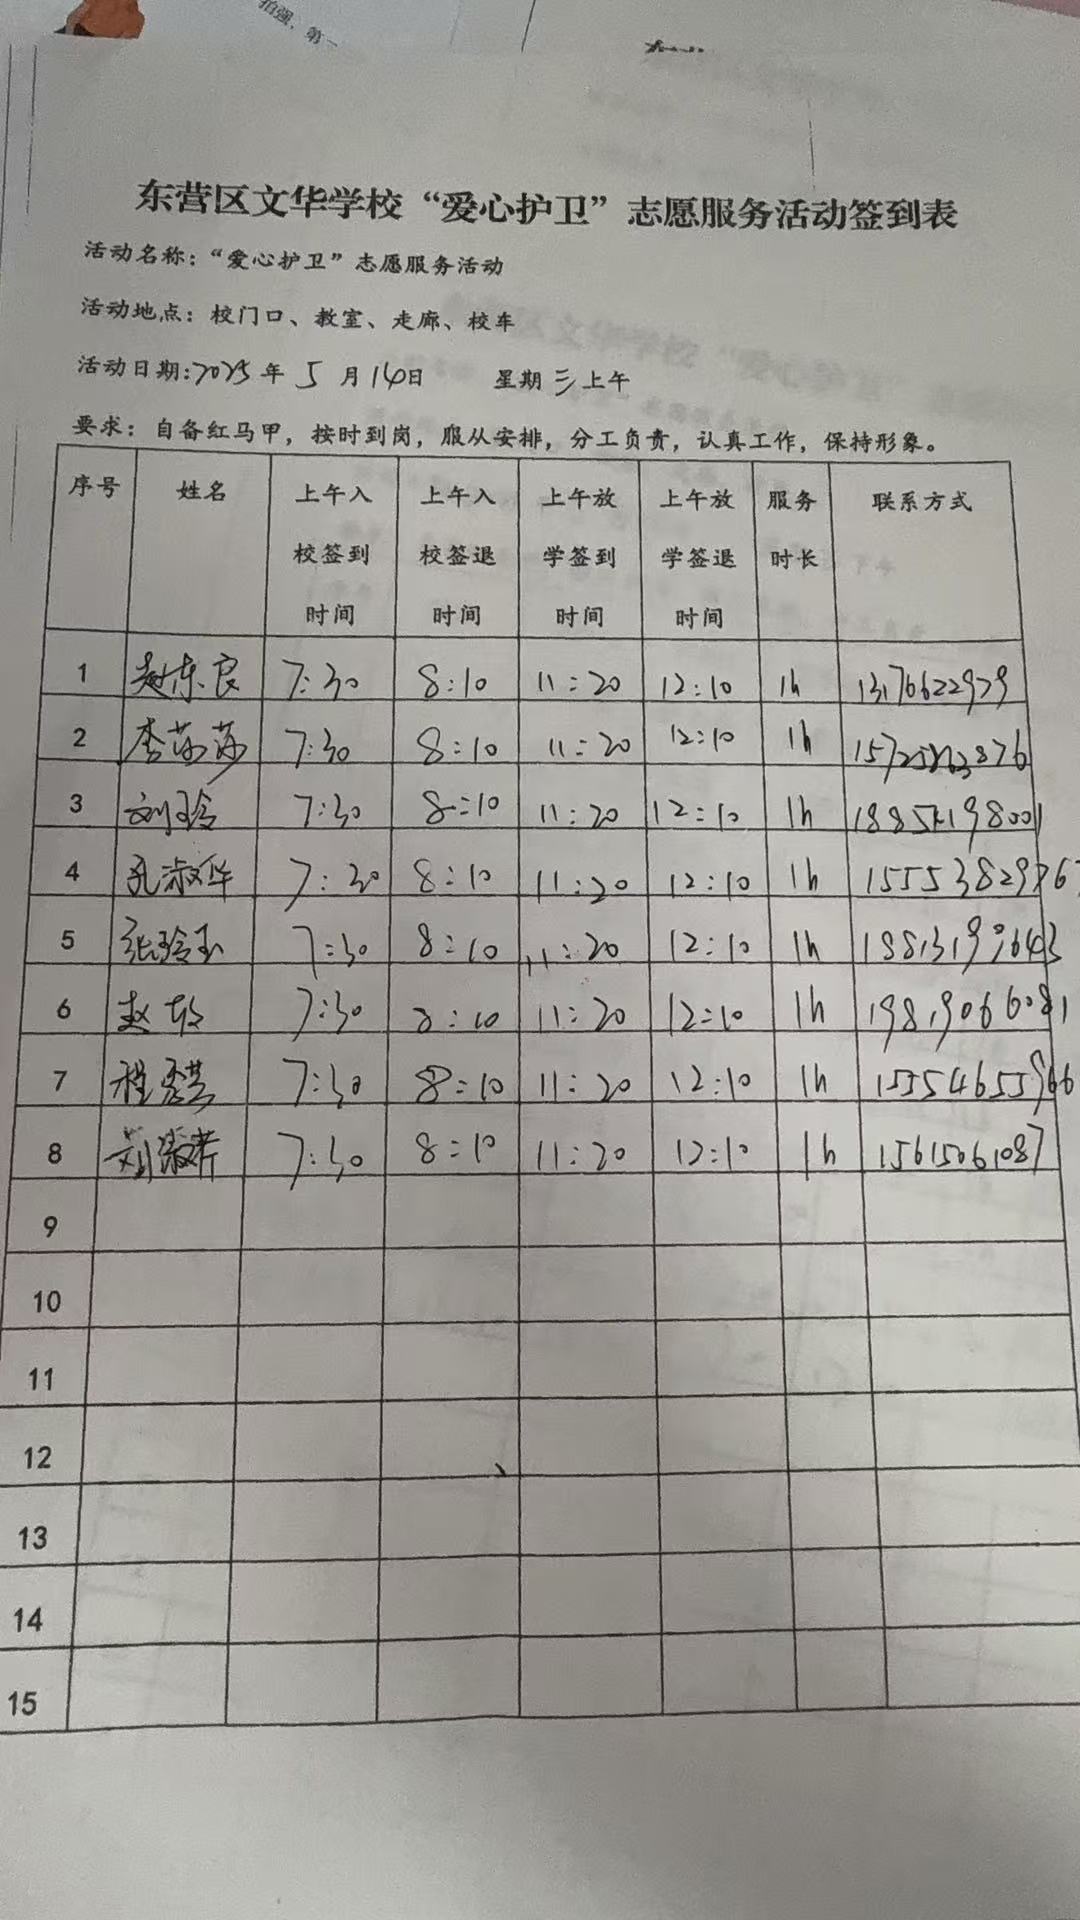 拍强、第一
东营区文华学校“爱心护卫”志愿服务活动签到表
活动名称：“爱心护卫”志愿服务活动
活动地点：校门口、教室、走廊、校车
活动日期:2025年 5 月 14日 星期三上午
要求：自备红马甲，按时到岗，服从安排，分工负责，认真工作，保持形象。
序号 姓名 上午入校签到时间 上午入校签退时间 上午放学签到时间 上午放学签退时间 服务时长 联系方式
1 赵东良 7:30 8:10 11:20 12:10 1h 13176622979
2 李莎莎 7:30 8:10 11:20 12:10 1h
3 刘玲 7:30 8:10 11:20 12:10 1h
4 孔淑华 7:30 8:10 11:20 12:10 1h
5 张玲玉 7:30 8:10 11:20 12:10 1h
6 赵敏 7:30 8:10 11:20 12:10 1h 19819066081
7 程秀芸 7:30 8:10 11:20 12:10 1h 15554655966
8 刘淑芹 7:30 8:10 11:20 12:10 1h 15615061087
9
10
11
12
13
14
15